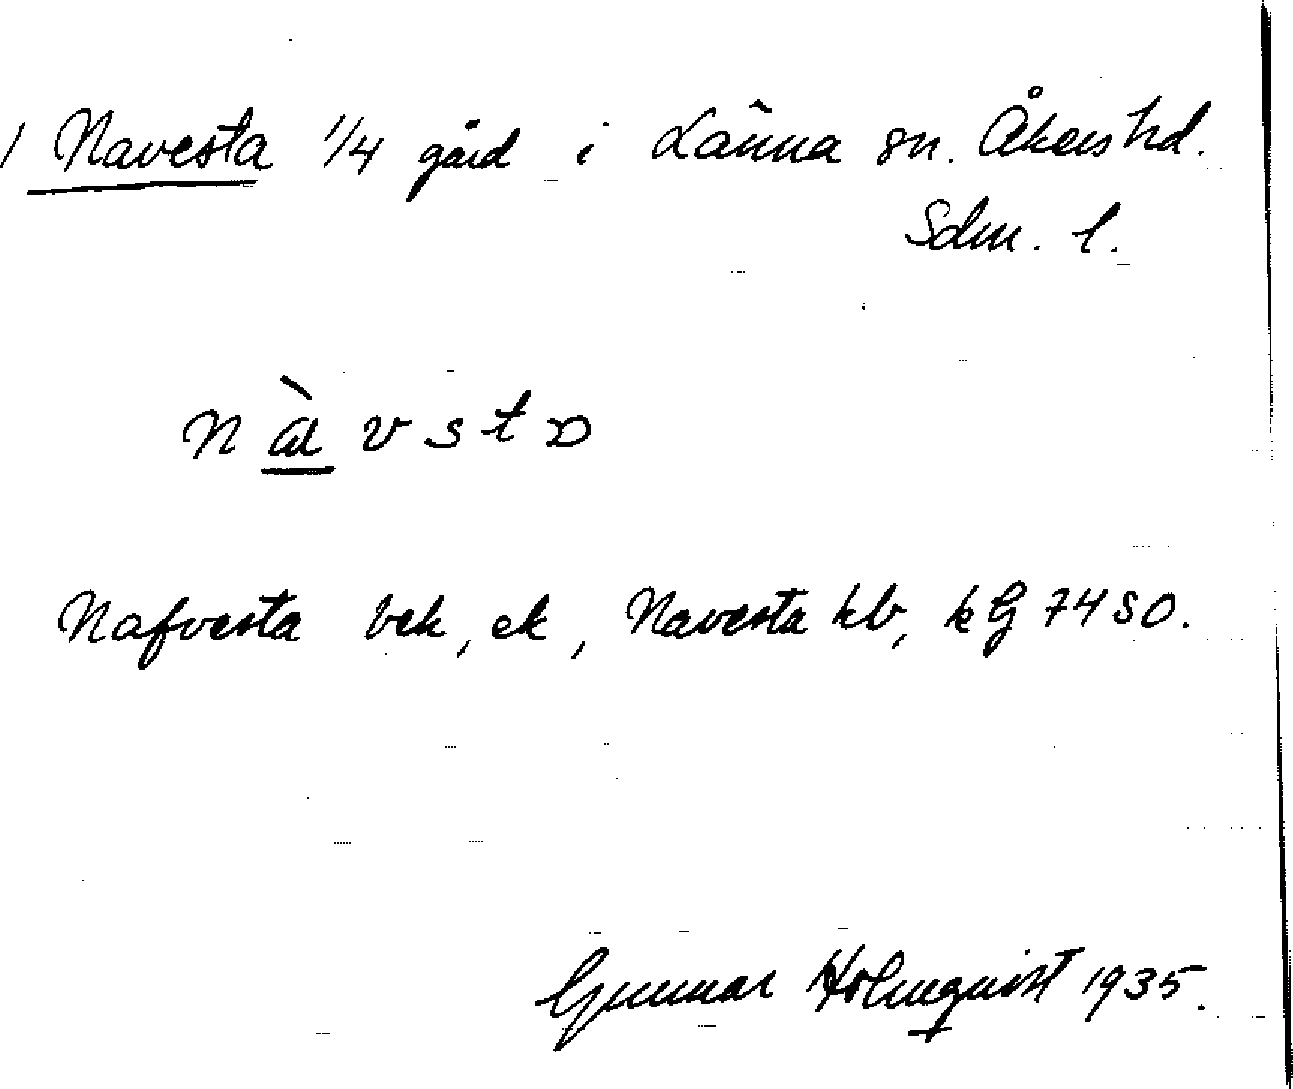 / Navesta 1/4 gård i Länna sn. Åkers hd.
Sdm. l.
n à v s t
Nafvesta bek, ek, Navesta kb, kG 74 SO.
Gunnar Holmquist 1935.